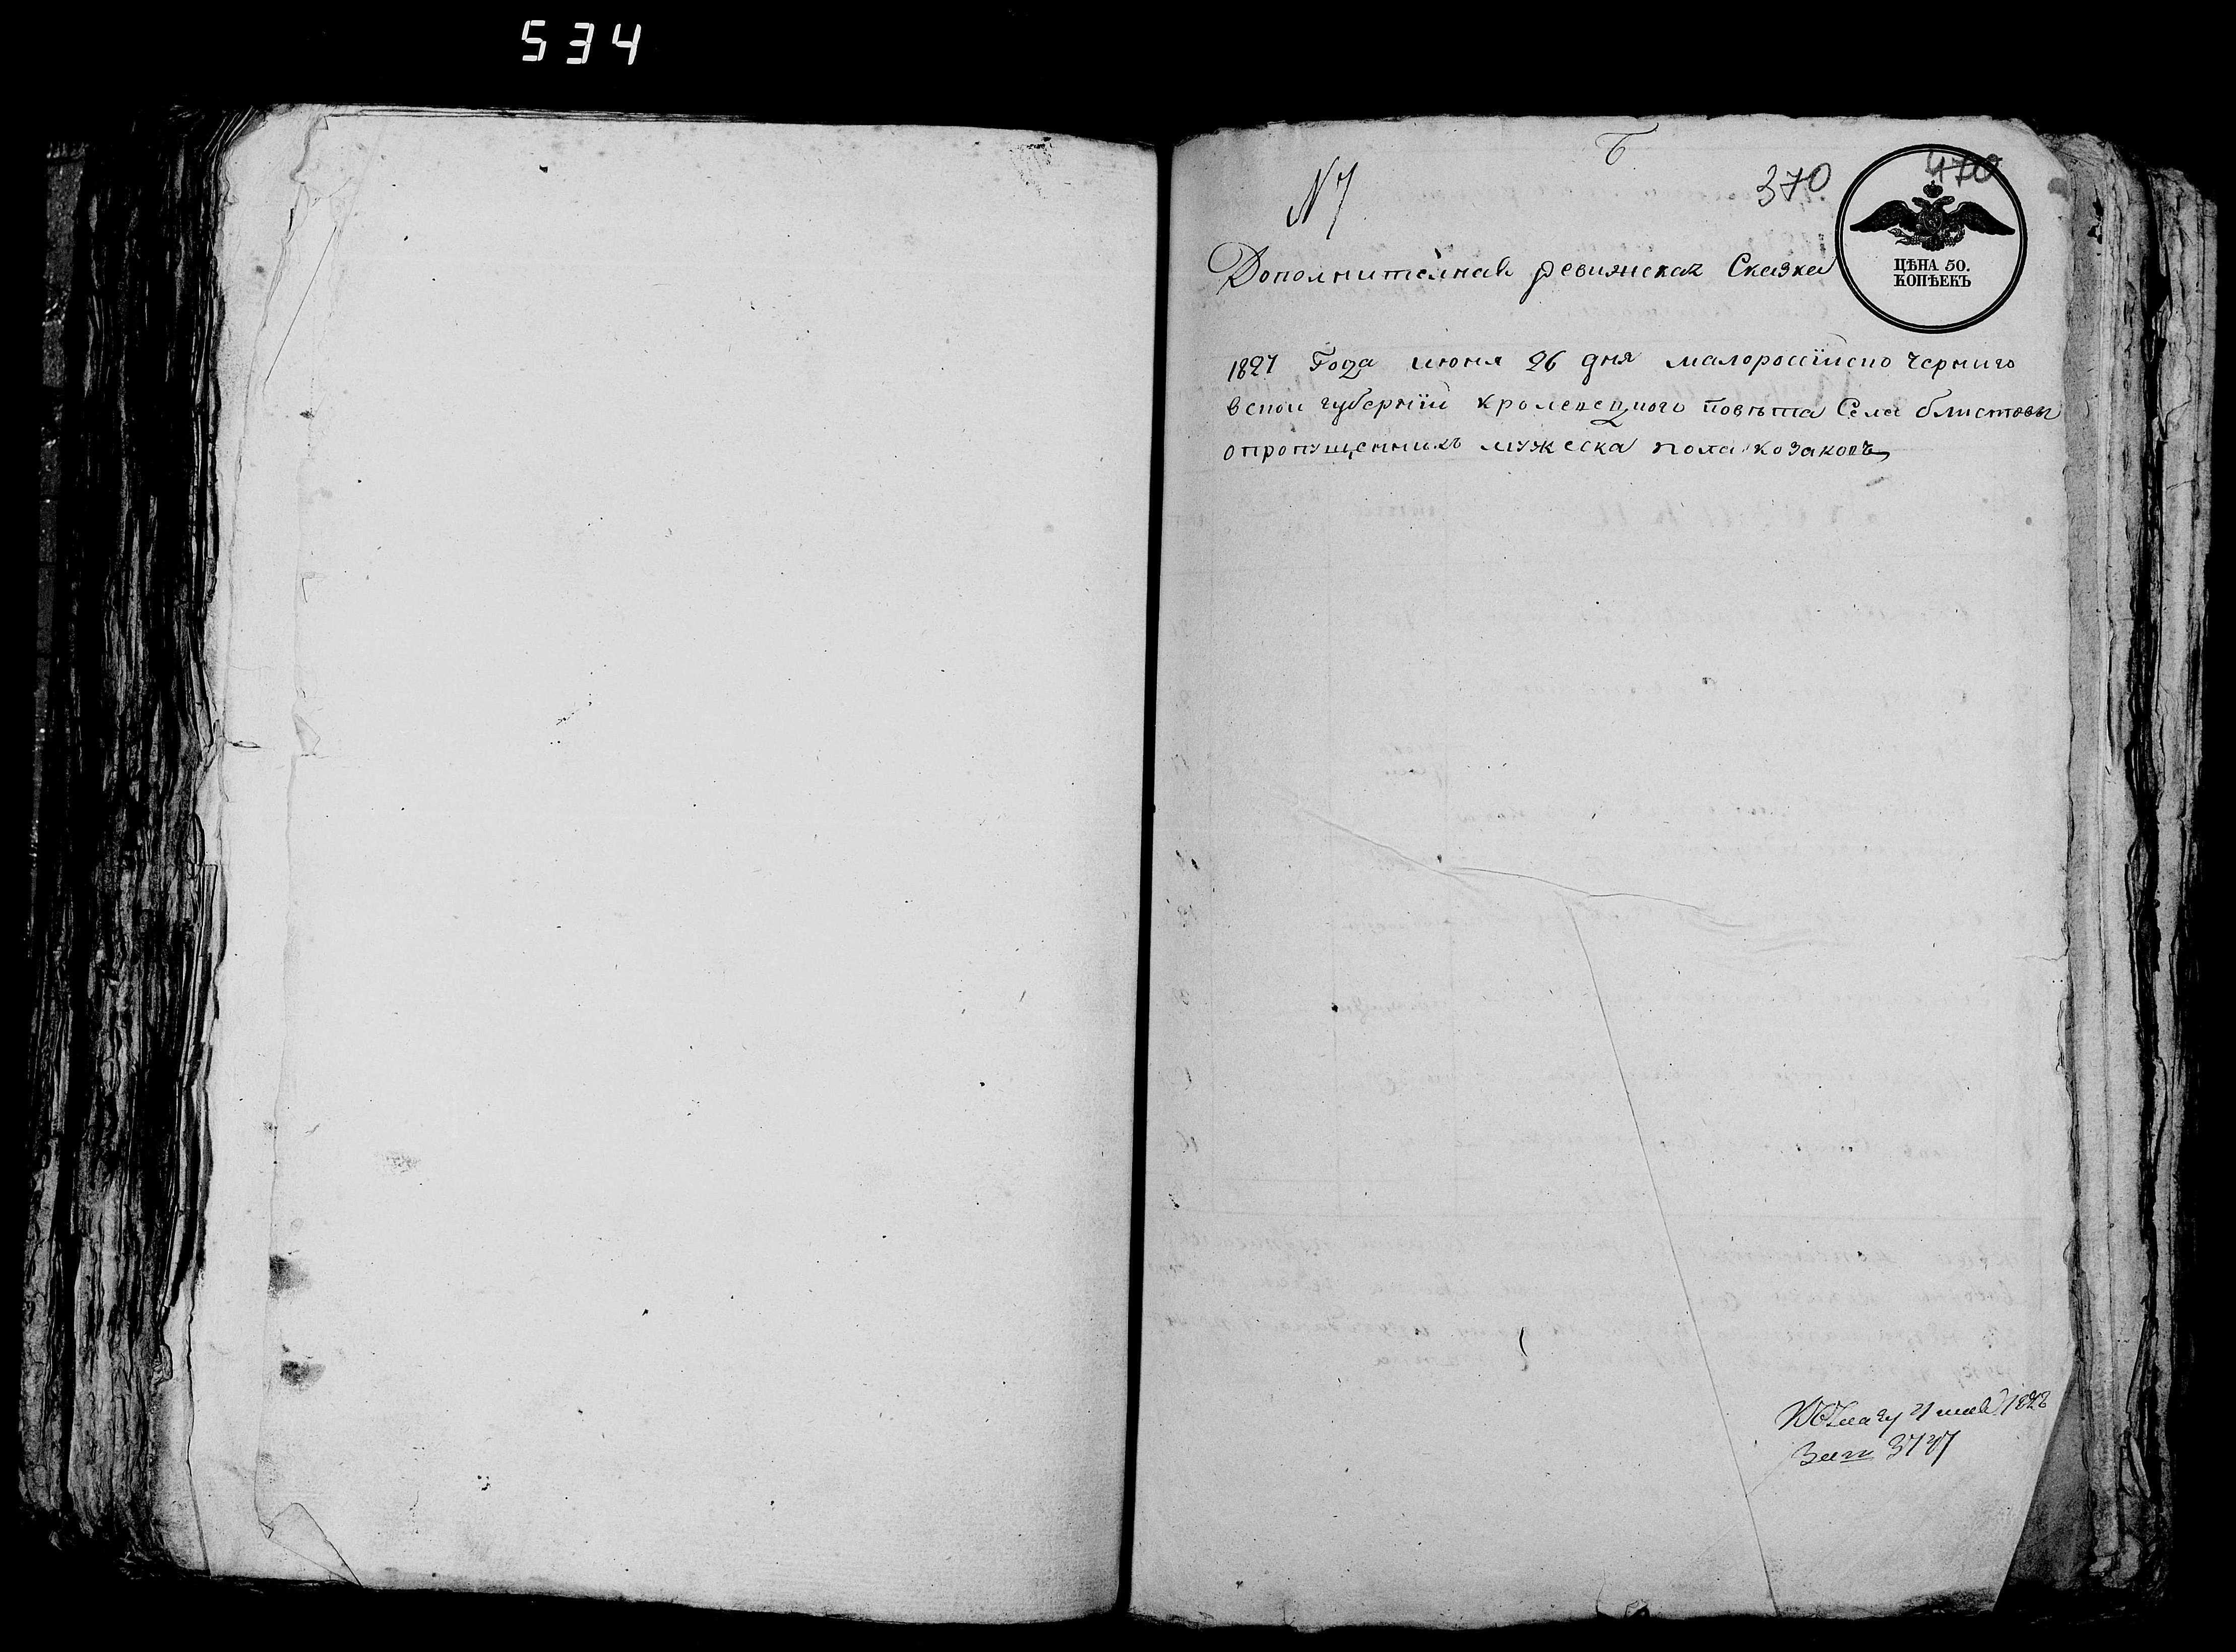 534
Б
N 7
370
470
ЦѢНА 50.
КОПѢЕКЪ
Дополнителная ревизская Сказка
1827 Года июня 26 дня малороссїиско Черниго
вскои губернїи кролевецкого повѣта Села блистовы
опропущенныхъ мужеска пола козаковъ
1828
3737